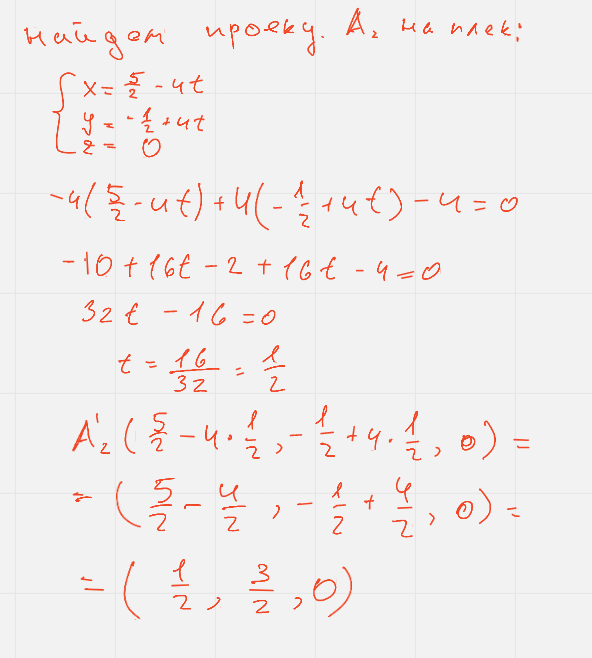 найдем проекц. A₂ на плск:
{ x = 5/2 - 4t
y = -1/2 + 4t
z = 0
-4(5/2 - 4t) + 4(-1/2 + 4t) - 4 = 0
-10 + 16t - 2 + 16t - 4 = 0
32t - 16 = 0
t = 16/32 = 1/2
A'₂ (5/2 - 4·1/2, -1/2 + 4·1/2, 0) =
= (5/2 - 4/2, -1/2 + 4/2, 0) =
= (1/2, 3/2, 0)